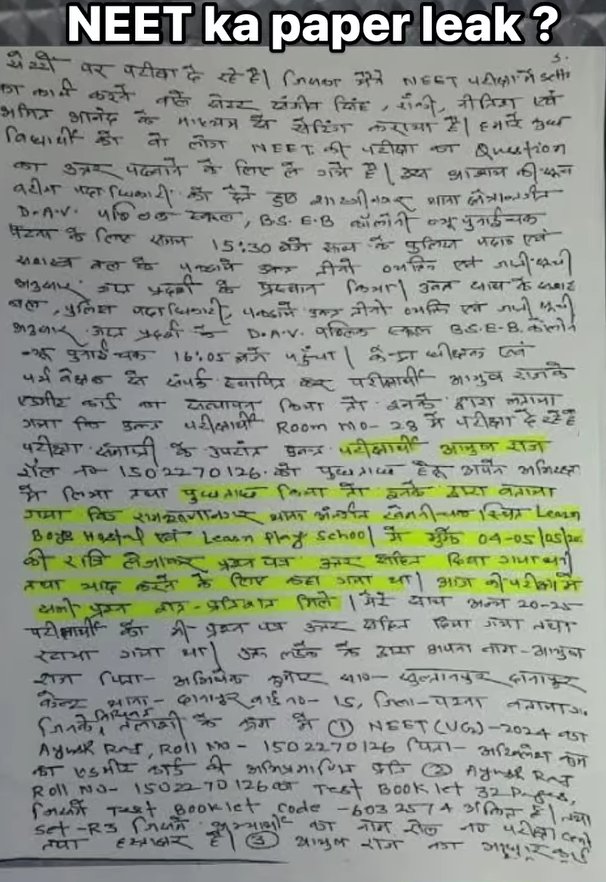 NEET ka paper leak ?
3.
सेन्टरों पर परीक्षा दे रहे है। जिसका मैंने NEET परीक्षा में setting
का कार्य करने वाले संजीव सिंह, रॉकी, नीतिश एवं
अमित आनंद के माध्यम से सेटिंग कराया है। हमारे कुछ
विद्यार्थी को वे लोग NEET की परीक्षा का Question
का उत्तर रटवाने के लिए ले गये है। इस आशय की सूचना
वरीय पदाधिकारी को देते हुए शास्त्रीनगर थाना क्षेत्रान्तर्गत
D.A.V. पब्लिक स्कूल, B.S.E.B कॉलोनी न्यू पुनाईचक
पटना के लिए समय 15:30 बजे साथ के पुलिस पदा॰ एवं
सशस्त्र बल के पकड़ाये उक्त तीनों व्यक्ति एवं
अनुसार प्रस्थान किया। उक्त साथ के सशस्त्र
बल, पुलिस पदाधिकारी, पकड़ाये उक्त तीनों व्यक्ति एवं
अनुसार के D.A.V. पब्लिक स्कूल B.S.E.B. कॉलोनी
न्यू पुनाईचक 16:05 बजे पहुँचा। केन्द्राधीक्षक एवं
पर्यवेक्षक से संपर्क स्थापित कर परीक्षार्थी आयुष राज के
एडमीट कार्ड का सत्यापन किया तो इनके द्वारा बताया
गया कि उक्त परीक्षार्थी Room No-28 में परीक्षा दे रहे है
परीक्षा समाप्ति के उपरांत उक्त परीक्षार्थी आयुष राज
रौल न॰ 1502270126 को पुछताछ हेतू अपने अभिरक्षा
में लिया तथा पुछताछ किया तो इनके द्वारा बताया
गया कि रामकृष्णानगर थाना अंतर्गत खेमनीचक स्थित Learn
Boys Hostel एवं Learn Play School में मुझे 04-05/05/24
की रात्रि लेजाकर प्रश्न पत्र उत्तर सहित दिया गया था
तथा याद करने के लिए कहा गया था। आज की परीक्षा में
सभी प्रश्न शत-प्रतिशत मिले। मेरे साथ अन्य 20-25
परीक्षार्थी को भी प्रश्न पत्र उत्तर सहित दिया गया तथा
रटाया गया था। उक्त लड़के के द्वारा अपना नाम-आयुष
राज पिता- अखिलेश कुमार सा०- सुल्तानपुर दानापुर
केन्ट थाना- दानापुर वार्ड न०- 15, जिला-पटना बताया।
जिनके विधिवत तलाशी के क्रम में ① NEET(UG)-2024 का
Ayush Raj, Roll No- 1502270126 पिता- अखिलेश कुमार
का एडमीट कार्ड की अभिप्रमाणित प्रति ② Ayush Raj
Roll No- 1502270126 का Test Booklet 32 Pages,
जिसमें Test Booklet Code -6032574 अंकित है। तथा
Set -R3 जिसमें अभ्यार्थी का नाम रोल न० परीक्षा केन्द्र
तथा हस्ताक्षर है। ③ आयुष राज का आधार कार्ड